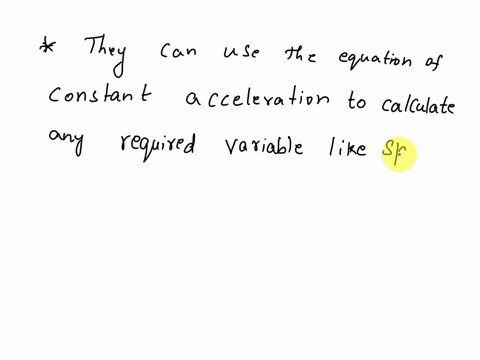 * They can use the equation of
constant acceleration to calculate
any required variable like sp